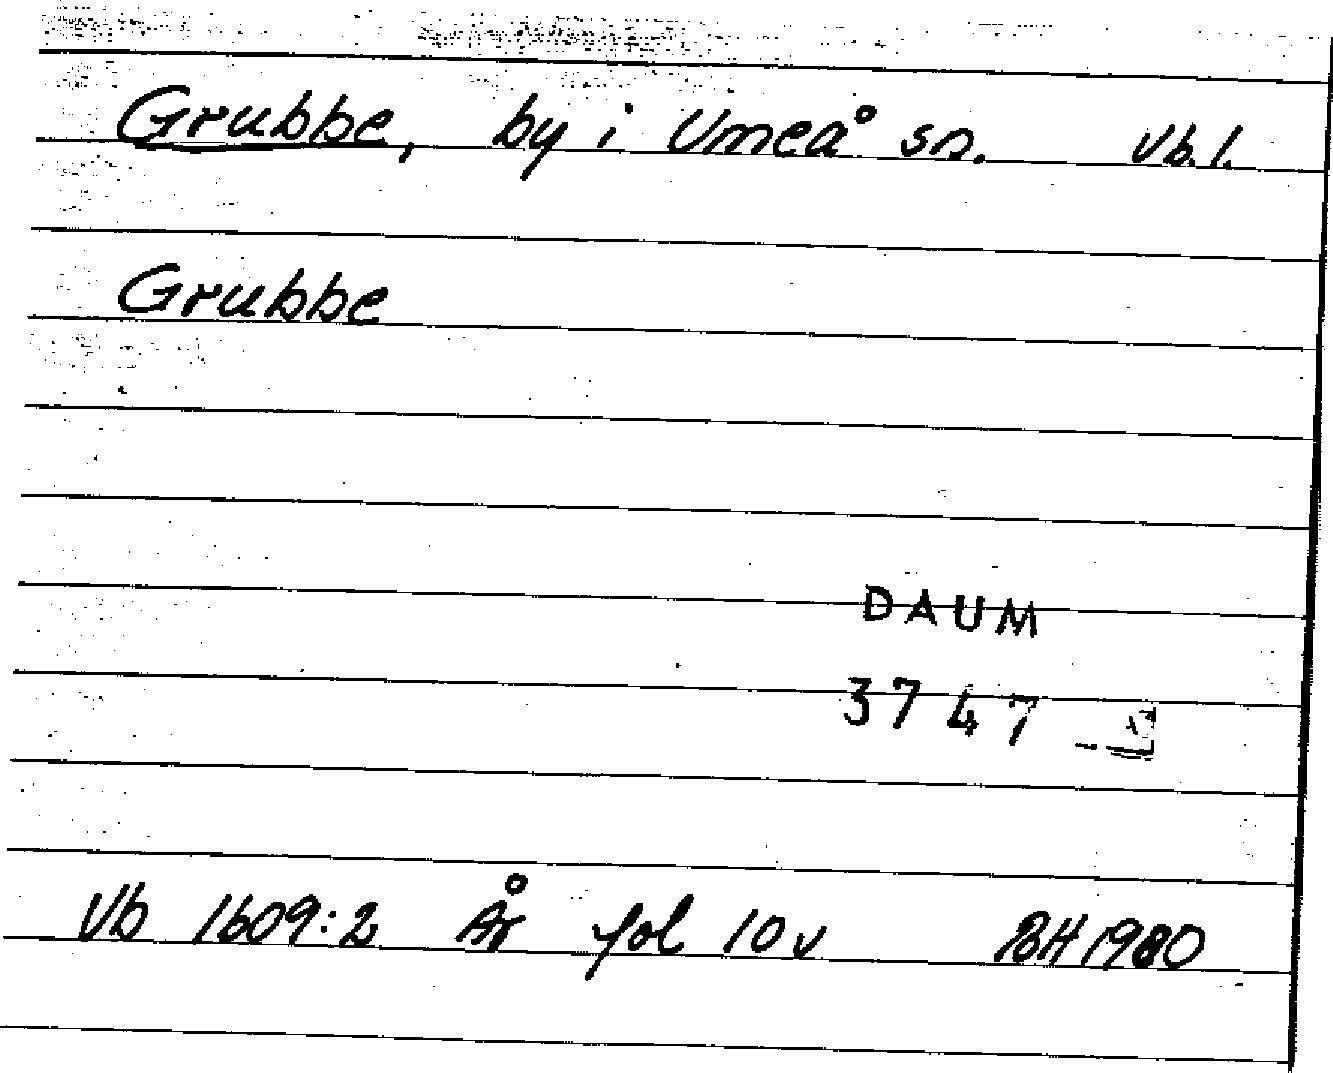 Grubbe, by i Umeå sn. Vb. l.
Grubbe
DAUM
3747
Vb 1609:2 År fol 10 v BH 1980